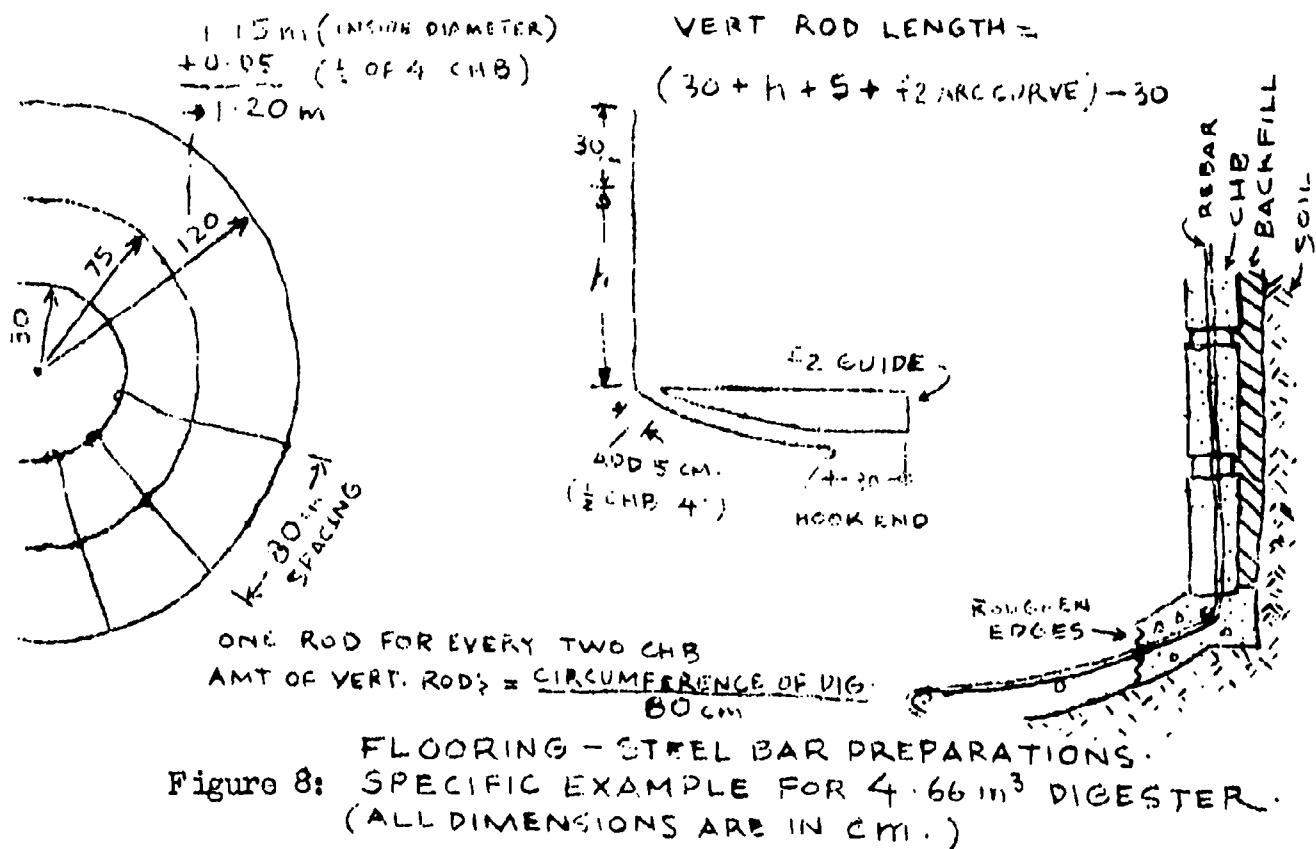 1.15 m (INSIDE DIAMETER)
+0.05 (½ OF 4 CHB)
1.20 m
VERT ROD LENGTH =
(30 + h + 5 + #2 ARC CURVE) - 30
30
75
120
80 cm
SPACING
30
5
h
#2 GUIDE
ADD 5 CM.
(½ CHB 4")
30
HOOK END
REBAR
CHB
BACKFILL
SOIL
ROUGHEN
EDGES
ONE ROD FOR EVERY TWO CHB
AMT OF VERT. RODS = CIRCUMFERENCE OF DIG.
80 cm
FLOORING - STEEL BAR PREPARATIONS.
Figure 8: SPECIFIC EXAMPLE FOR 4.66 m³ DIGESTER.
(ALL DIMENSIONS ARE IN cm.)